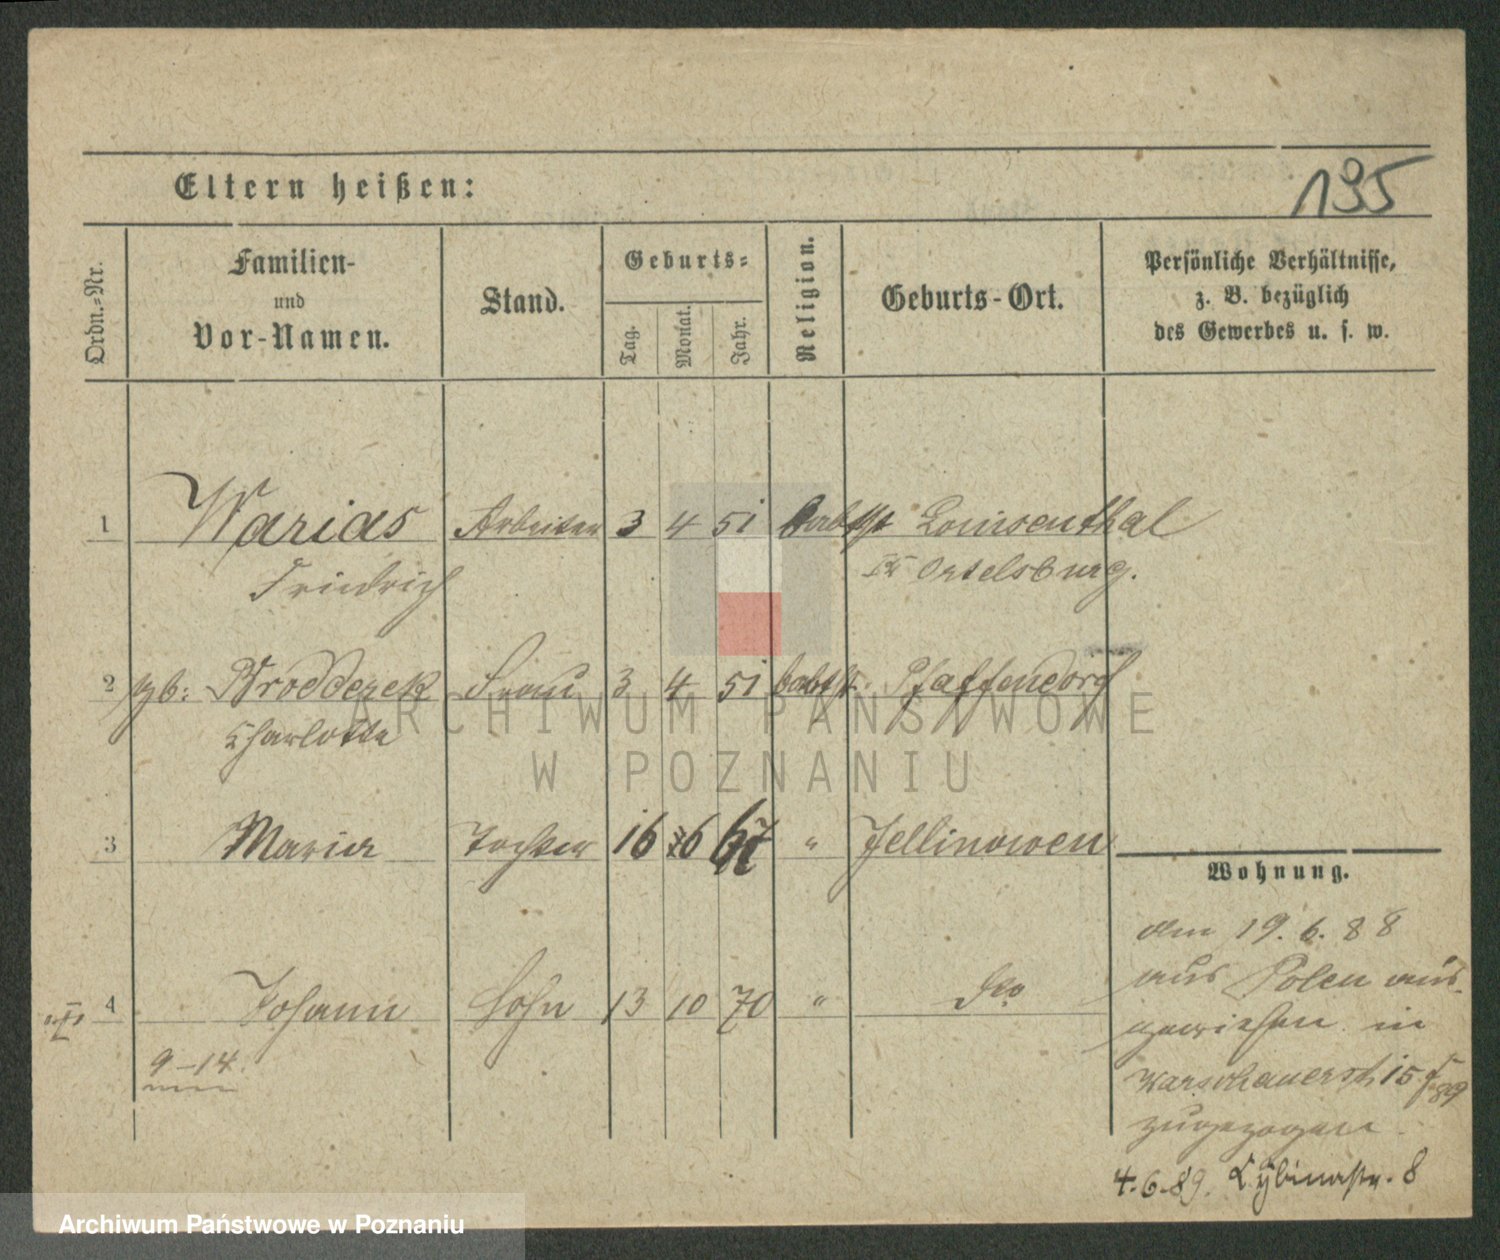 195
Eltern heißen:
Ordn.=Nr.
Familien-
und
Vor-Namen.
Stand.
Geburts=
Tag.
Monat.
Jahr.
Religion.
Geburts-Ort.
Persönliche Verhältnisse,
z. B. bezüglich
des Gewerbes u. s. w.
1 Warias Arbeiter 3 4 51 babtst Louisenthal
Friedrich Ortelsburg.
2 gb: Brodderek Frau 3 4 51 babtst. Pfaffendorf
Charlotte
3 Maria Tochter 16 6 " Jellinowen
4 Johann Sohn 13 10 70 " do
9-14.
Wohnung.
den 19. 6. 88
aus Polen aus-
gewiesen in
Warschauerstr 15
89
zugezogen.
4.6.89. Cybinastr. 8
ARCHIWUM PAŃSTWOWE
W POZNANIU
Archiwum Państwowe w Poznaniu